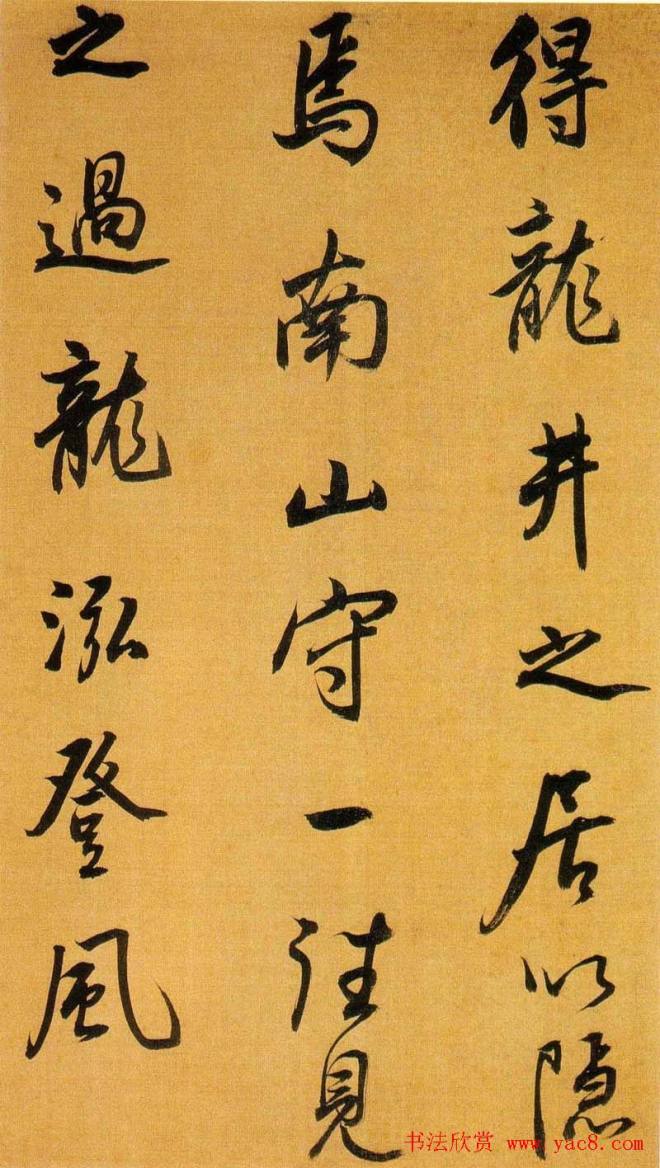 得龍井之居以隱
焉南山守一往見
之過龍泓登風
书法欣赏 www.yac8.com